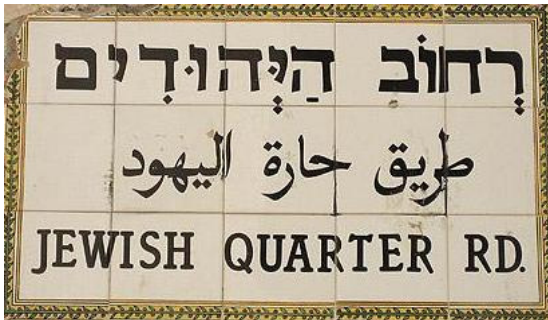 רְחוֹב הַיְּהוּדִים
طريق حارة اليهود
JEWISH QUARTER RD.